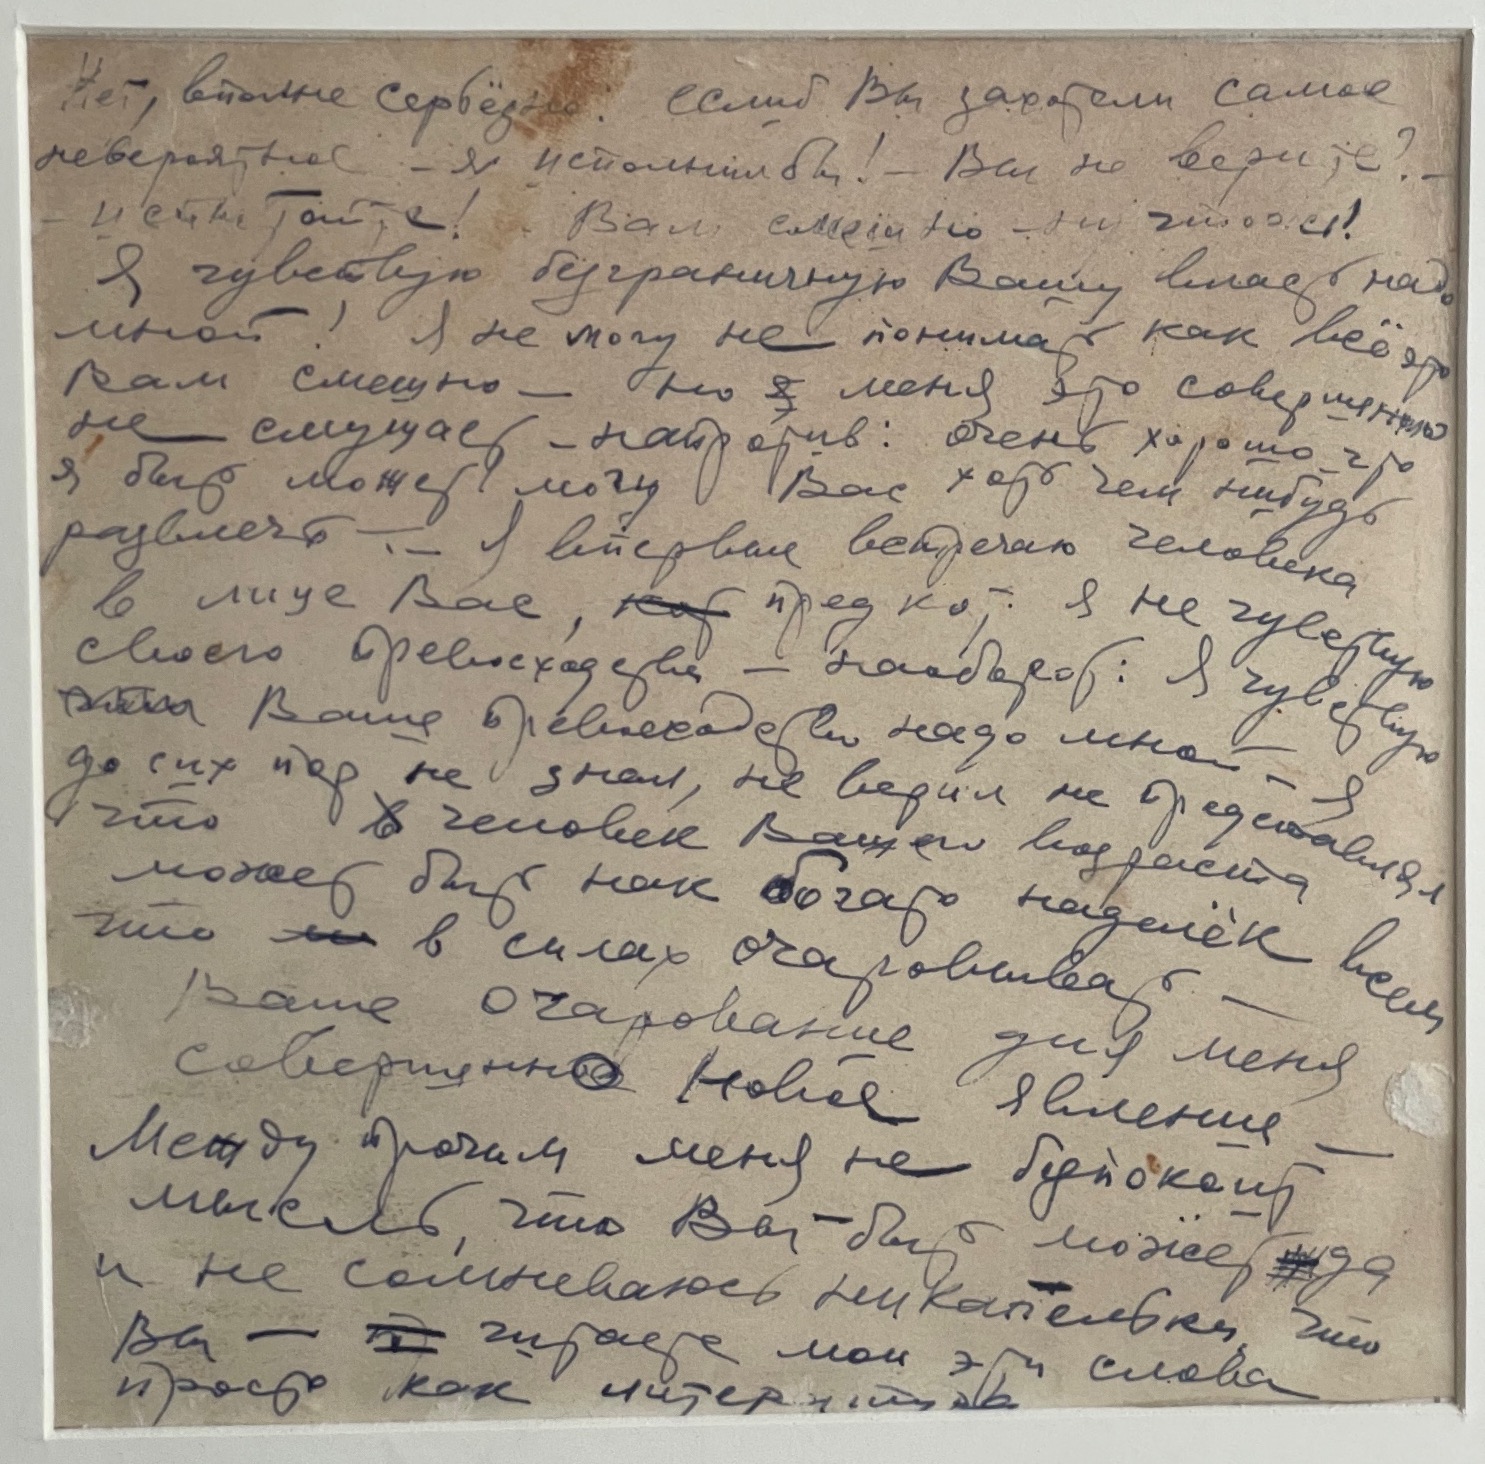 Нет, вполне серьёзно. если б Вы захотели самое
невероятное – я исполнил бы! – Вы не верите? –
– испытайте! – Вам смешно – ничего!
Я чувствую безграничную Вашу власть надо
мной! Я не могу не понимать как всё это
Вам смешно – но меня это совершенно
не смущает – напротив: очень хорошо что
я быть может могу Вас хоть чем нибудь
развлечь – Я впервые встречаю человека
в лице Вас, пред кот. я не чувствую
своего превосходства – наоборот: Я чувствую
Ваше превосходство надо мной – Я
до сих пор не знал, не верил не представлял
что человек Вашего возраста
может быть так богато наделён всем
что в силах очаровывать –
Ваше очарование для меня
совершенно новое явление –
Между прочим меня не беспокоит
мысль, что Вы – быть может да
и не сомневаюсь ни капельки, что
Вы – читаете мои эти слова
просто как